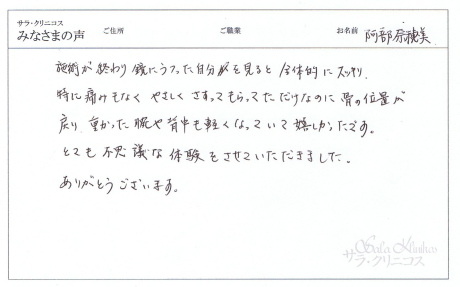 サラ・クリニコス
みなさまの声
ご住所
ご職業
お名前 阿部奈穂美
施術が終わり鏡にうつった自分を見ると全体的にスッキリ
特に痛みもなくやさしくさすってもらってただけなのに骨の位置が
戻り重かった腕や背中も軽くなっていて嬉しかったです。
とても不思議な体験をさせていただきました。
ありがとうございます。
Sala Klinikos
サラ・クリニコス